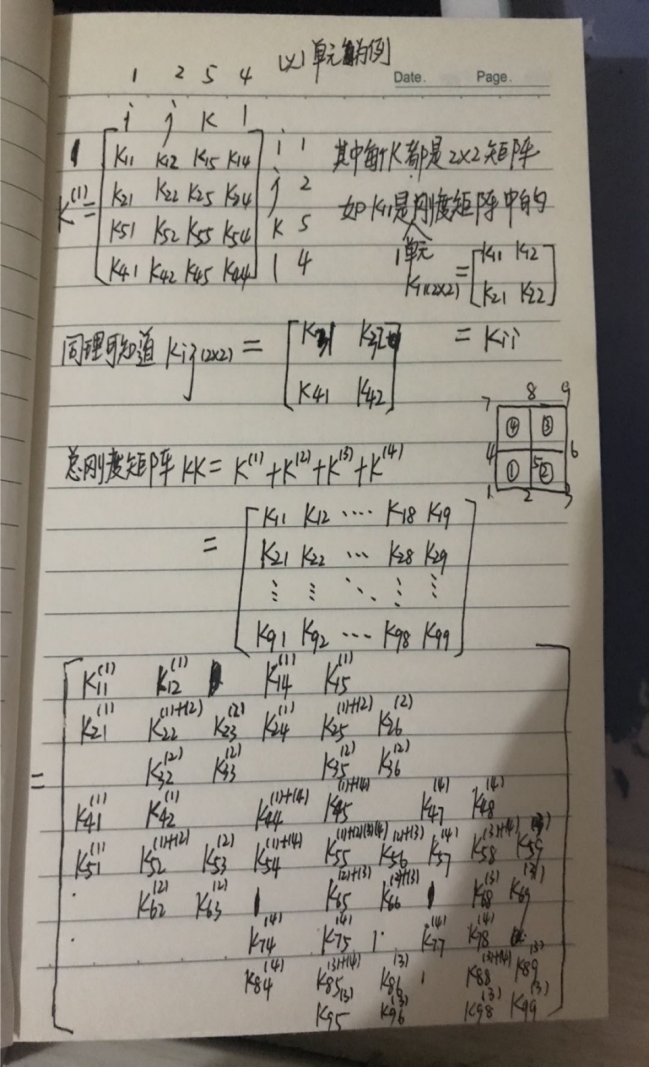 以1单元为例
Date. Page.
1 2 5 4
i j K l
K^(1) = [ K11 K12 K15 K14 ] i 1
[ K21 K22 K25 K24 ] j 2
[ K51 K52 K55 K54 ] K 5
[ K41 K42 K45 K44 ] l 4
其中每个K都是2×2矩阵
如K11是刚度矩阵中的
1单元
K11(2×2) = [ K11 K12
K21 K22 ]
同理可知道 Kij(2×2) = [ K31 K32 ] = Kji
[ K41 K42 ]
7 8 9
④ ③
4 5 6
① ②
1 2 3
总刚度矩阵 KK = K^(1) + K^(2) + K^(3) + K^(4)
= [ K11 K12 ···· K18 K19 ]
[ K21 K22 ··· K28 K29 ]
[ ⋮ ⋮ ⋱ ⋮ ⋮ ]
[ K91 K92 ··· K98 K99 ]
= [ K11^(1) K12^(1) K14^(1) K15^(1)
K21^(1) K22^(1)+(2) K23^(2) K24^(1) K25^(1)+(2) K26^(2)
K32^(2) K33^(2) K35^(2) K36^(2)
K41^(1) K42^(1) K44^(1)+(4) K45^(1)+(4) K47^(4) K48^(4)
K51^(1) K52^(1)+(2) K53^(2) K54^(1)+(4) K55^(1)+(2)(3)(4) K56^(2)+(3) K57^(4) K58^(3)+(4) K59^(3)
K62^(2) K63^(2) K65^(2)+(3) K66^(2)+(3) K68^(3) K69^(3)
K74^(4) K75^(4) K77^(4) K78^(4)
K84^(4) K85^(3)+(4) K86^(3) K88^(3)+(4) K89^(3)
K95^(3) K96^(3) K98^(3) K99^(3) ]